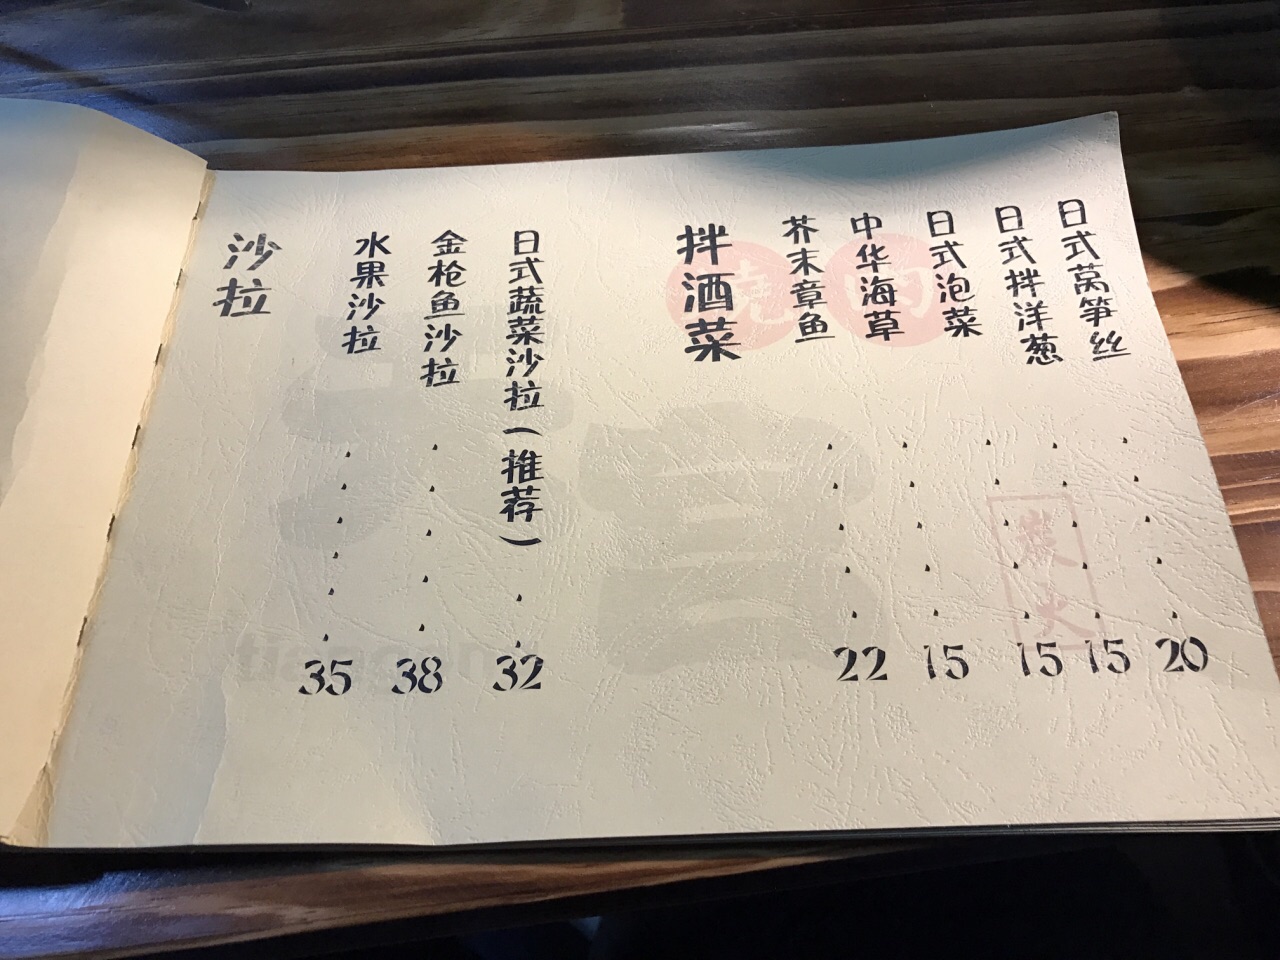 沙拉
水果沙拉 35
金枪鱼沙拉 38
日式蔬菜沙拉(推荐) 32
拌酒菜
芥末章鱼 22
中华海草 15
日式泡菜 15
日式拌洋葱 15
日式莴笋丝 20